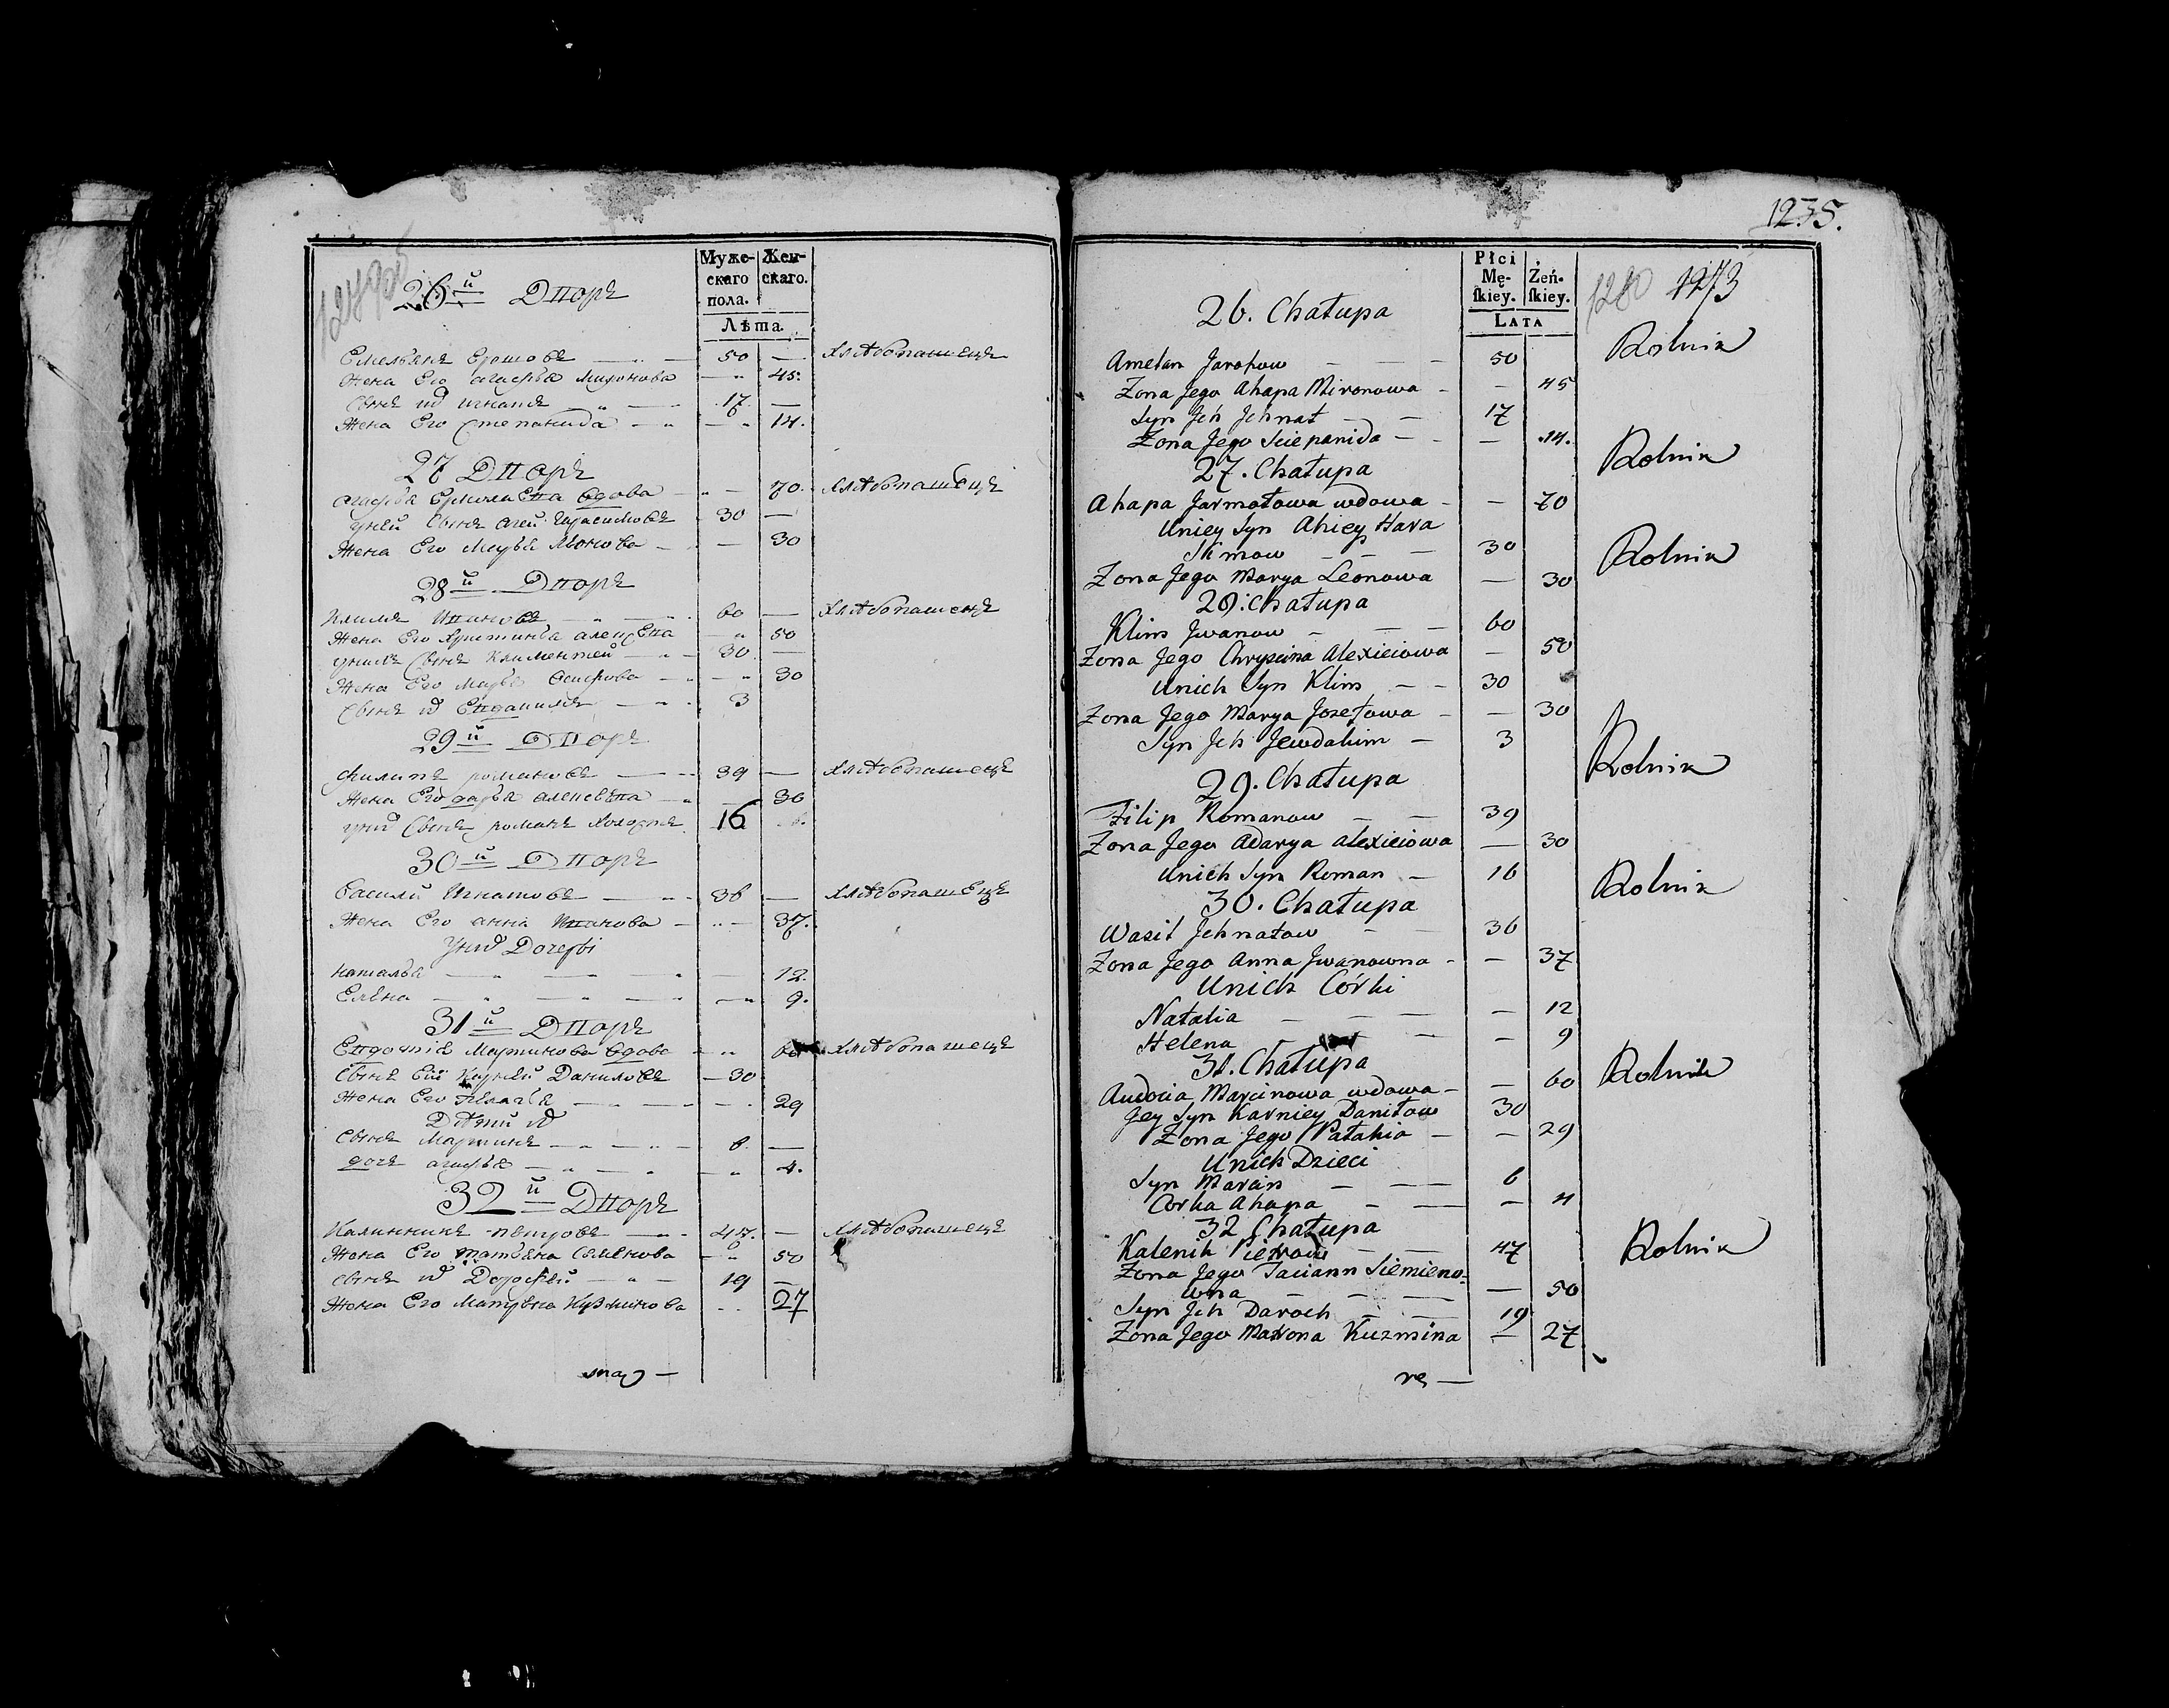 26й Дворъ
Муже-
скаго
пола.
Жен-
скаго.
Лѣта.
Емельянъ Ерошовъ — 50 — хлѣбопашецъ
Жена Его агафья Миронова — 45.
Сынъ их игнатъ 17 —
Жена Его Степанида — 14.
27 Дворъ
агафья Ермолаева вдова — 70. хлѣбопашецъ
уней Сынъ агей Герасимовъ 30 —
Жена Его Марья Леонова — 30
28й Дворъ
Климъ Ивановъ 60 — хлѣбопашецъ
Жена Его Христинья алексѣева 50
унихъ Сынъ Климентей 30 —
Жена Его Марья Осифова — 30
Сынъ их Евдакимъ 3
29й Дворъ
Филипъ романовъ 39 — хлѣбопашецъ
Жена Его дарья алексѣева — 30
уних Сынъ романъ холостъ 16
30й Дворъ
Василий Игнатовъ 36 — хлѣбопашецъ
Жена Его анна Иванова — 37.
Уних Дочери
наталья — 12.
Елѣна — 9.
31й Дворъ
Евдотія Мартинова вдова 60 хлѣбопашецъ
Сынъ Ей Карнѣй Даниловъ — 30
Жена Его Пелагѣя — 29
Дѣти их
Сынъ Мартинъ 6. —
дочъ агафья — 4.
32й Дворъ
Калинникъ петровъ 47. — хлѣбопашецъ
Жена Его татьяна Семѣнова 50
Сынъ их Дорофѣй 19 —
Жена Его Матрѣна Кузминова 27
1235.
Płci
Mę-
skiey.
Żeń-
skiey.
LATA
1280 1273
26. Chałupa
Rolnik
Amelan Jarohow — 50
Zona Jego Ahapa Mironowa — 45
Syn Jch Jchnat — 17
Zona Jego Sciepanida — 14.
27. Chałupa
Rolnik
Ahapa Jarmołowa wdowa — 70
Uniey Syn Ahiey Hara
simow — 30
Zona Jego Marya Leonowa — 30
28. Chałupa
Rolnik
Klim Jwanow — 60
Zona Jego Chryscina Alexieiowa — 50
Unich Syn Klim — 30
Zona Jego Marya Jozefowa — 30
Syn Jch Jewdakim — 3
29. Chałupa
Rolnik
Filip Romanow — 39
Zona Jego Adarya alexieiowa — 30
Unich Syn Roman — 16
30. Chałupa
Rolnik
Wasil Jchnatow — 36
Zona Jego Anna Jwanowna — 37
Unich Córki
Natalia — 12
Helena — 9
31. Chałupa
Rolnik
Audocia Marcinowa wdowa — 60
Jey Syn Karniey Daniłow 30
Zona Jego Pałahia — 29
Unich Dzieci
Syn Marcin — 6
Corka Ahapa — 4
32 Chałupa
Rolnik
Kalenik Pietrow — 47
Zona Jego Taciann Siemieno-
wna — 50
Syn Jch Daroch — 19
Zona Jego Matrona Kuzmina — 27
re —